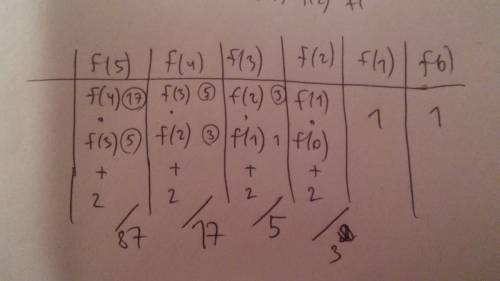 f(5) f(4) f(3) f(2) f(1) f(0)
f(4) 17 f(3) 5 f(2) 3 f(1) 1 1
· · · ·
f(3) 5 f(2) 3 f(1) 1 f(0)
+ + + +
2 2 2 2
87 17 5 3